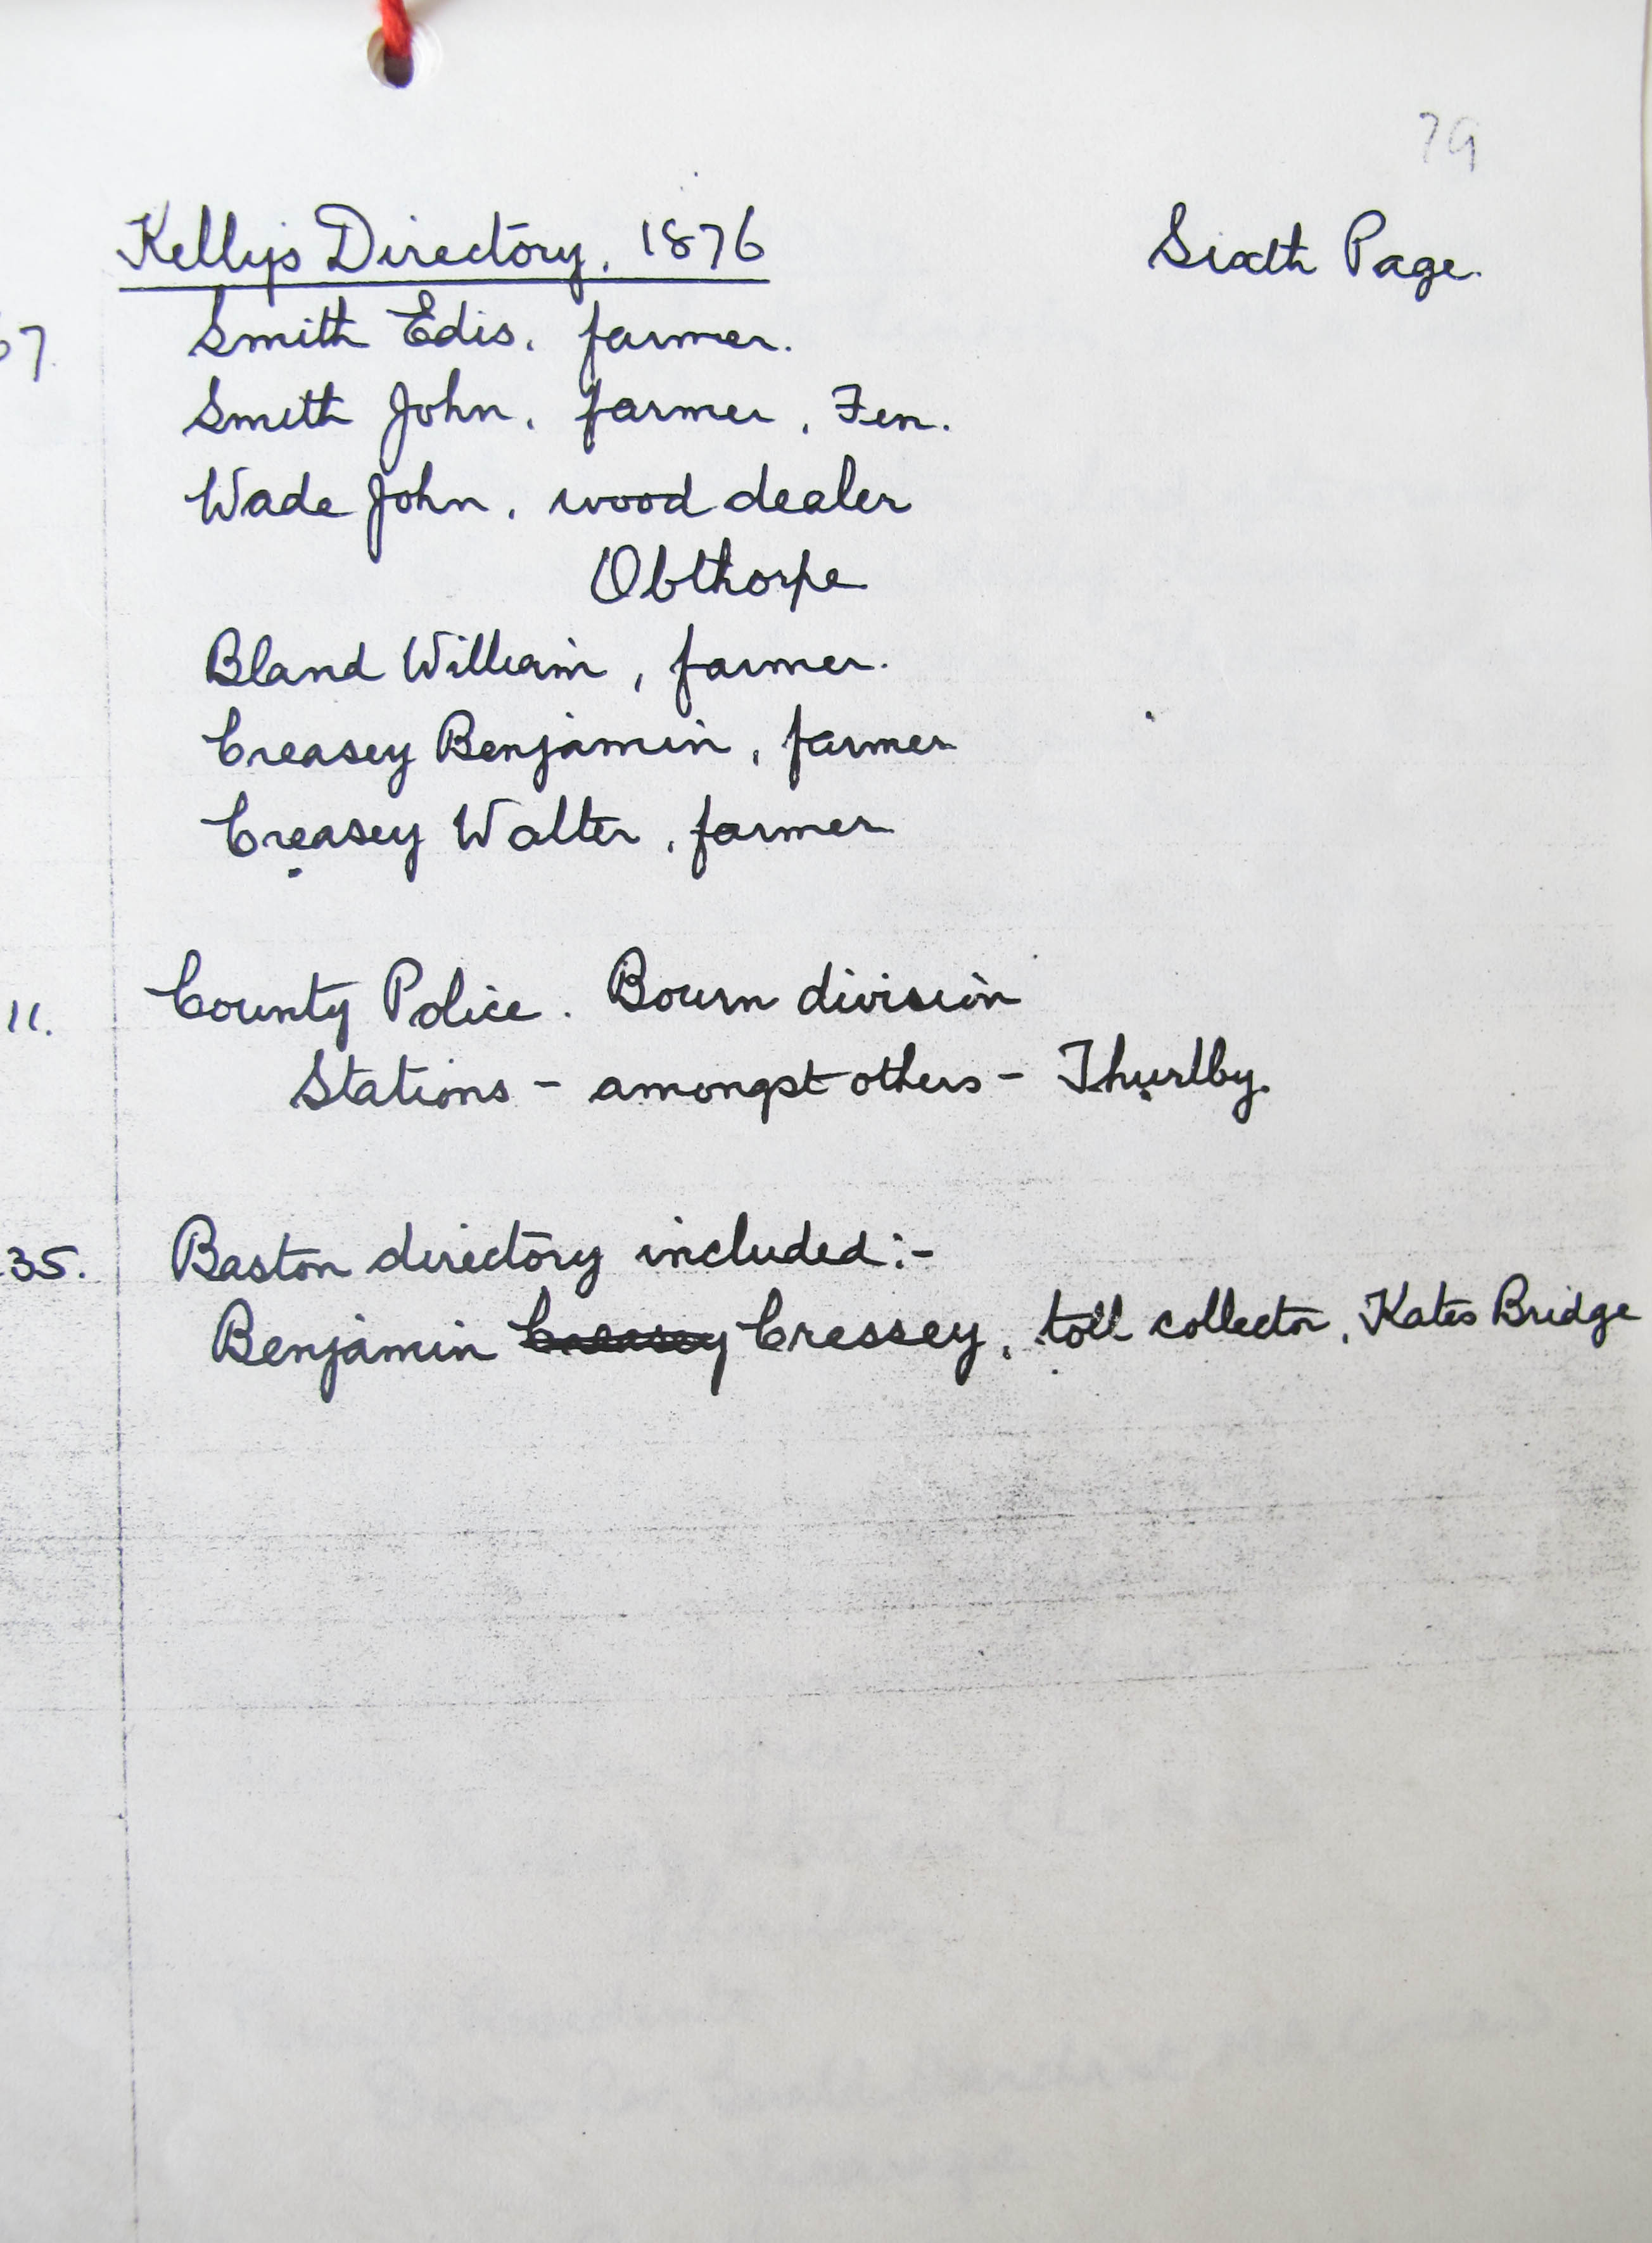 79
Kellys Directory. 1876 Sixth Page.
67. Smith Edis. farmer.
Smith John. farmer. Fen.
Wade John. wood dealer
Obthorpe
Bland William, farmer.
Creasey Benjamin, farmer
Creasey Walter, farmer
11. County Police. Bourn division
Stations - amongst others - Thurlby.
35. Baston directory included:-
Benjamin Creasey Cressey, toll collector, Kates Bridge